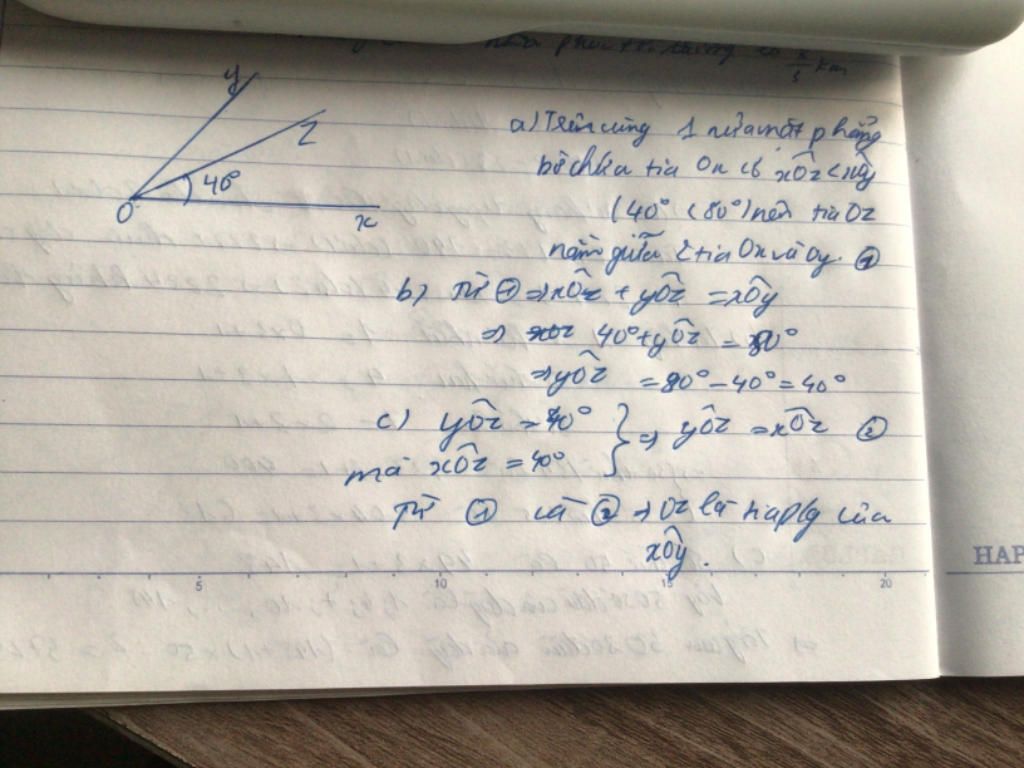 x/5 km
y
z
40°
O
x
a) Trên cùng 1 nửa mặt phẳng
bờ chứa tia Ox có xÔz < xÔy
(40° < 80°) nên tia Oz
nằm giữa 2 tia Ox và Oy. ①
b) Từ ① ⇒ xÔz + yÔz = xÔy
⇒ 40° + yÔz = 80°
⇒ yÔz = 80° - 40° = 40°
c) yÔz = 40°
mà xÔz = 40° } ⇒ yÔz = xÔz ②
Từ ① và ② ⇒ Oz là tia p/g của
xÔy.
5 10 15 20
HAP